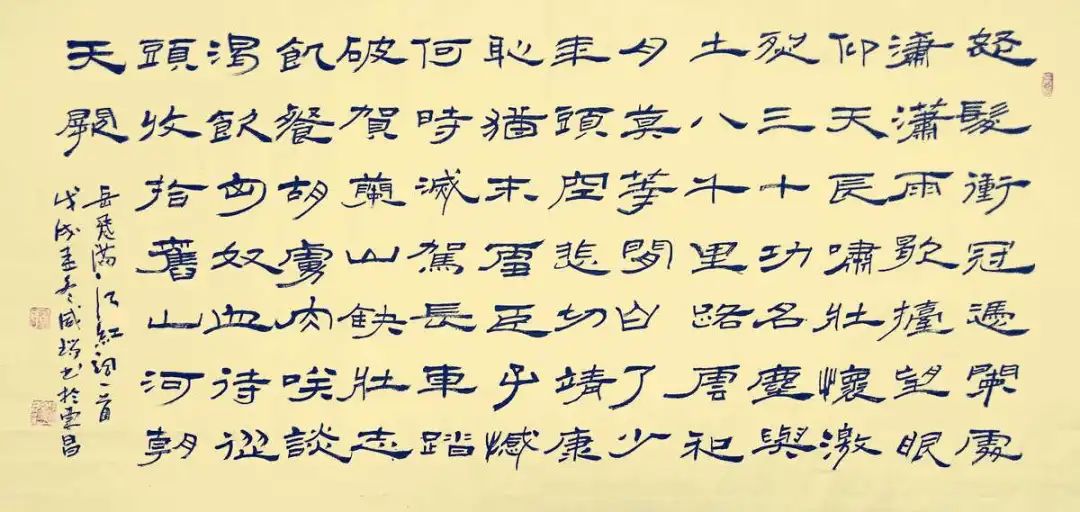 怒髮衝冠憑闌處
瀟瀟雨歇擡望眼
仰天長嘯壯懷激
烈三十功名塵與
土八千里路雲和
月莫等閒白了少
年頭空悲切靖康
恥猶未雪臣子憾
何時滅駕長車踏
破賀蘭山缺壯志
飢餐胡虜肉笑談
渴飲匈奴血待從
頭收拾舊山河朝
天闕
岳飛滿江紅詞一首
戊戌孟冬咸書於昌